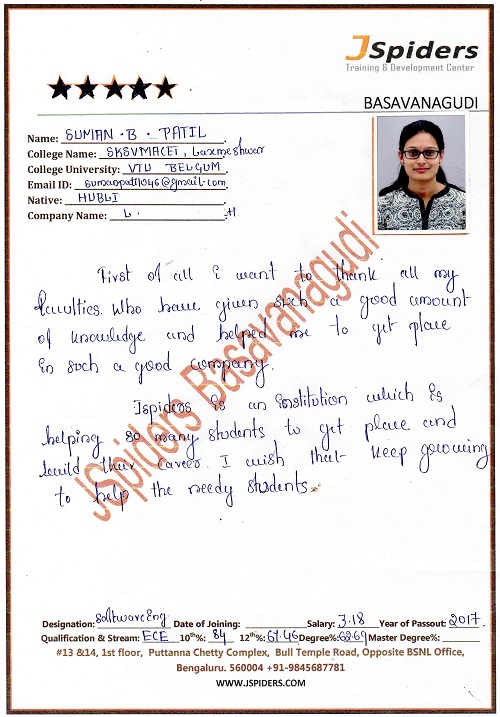 JSpiders
Training & Development Center
BASAVANAGUDI
Name: SUMAN . B . PATIL
College Name: SKSVMACET, Laxmeshwar
College University: VTU BELGUM
Email ID: sumanpatil046@gmail.com
Native: HUBLI
Company Name: L.
First of all i want to thank all my
faculties. Who have given such a good amount
of knowledge and helped me to get place
in such a good company.
Jspiders is an institution which is
helping so many students to get place and
build their career. I wish that keep growing
to help the needy students.
JSpiders Basavanagudi
Designation: Software Eng Date of Joining: Salary: 3.18 Year of Passout: 2017.
Qualification & Stream: ECE 10th%: 84 12th%: 67.46 Degree%: 68.69 Master Degree%:
#13 &14, 1st floor, Puttanna Chetty Complex, Bull Temple Road, Opposite BSNL Office,
Bengaluru. 560004 +91-9845687781
WWW.JSPIDERS.COM